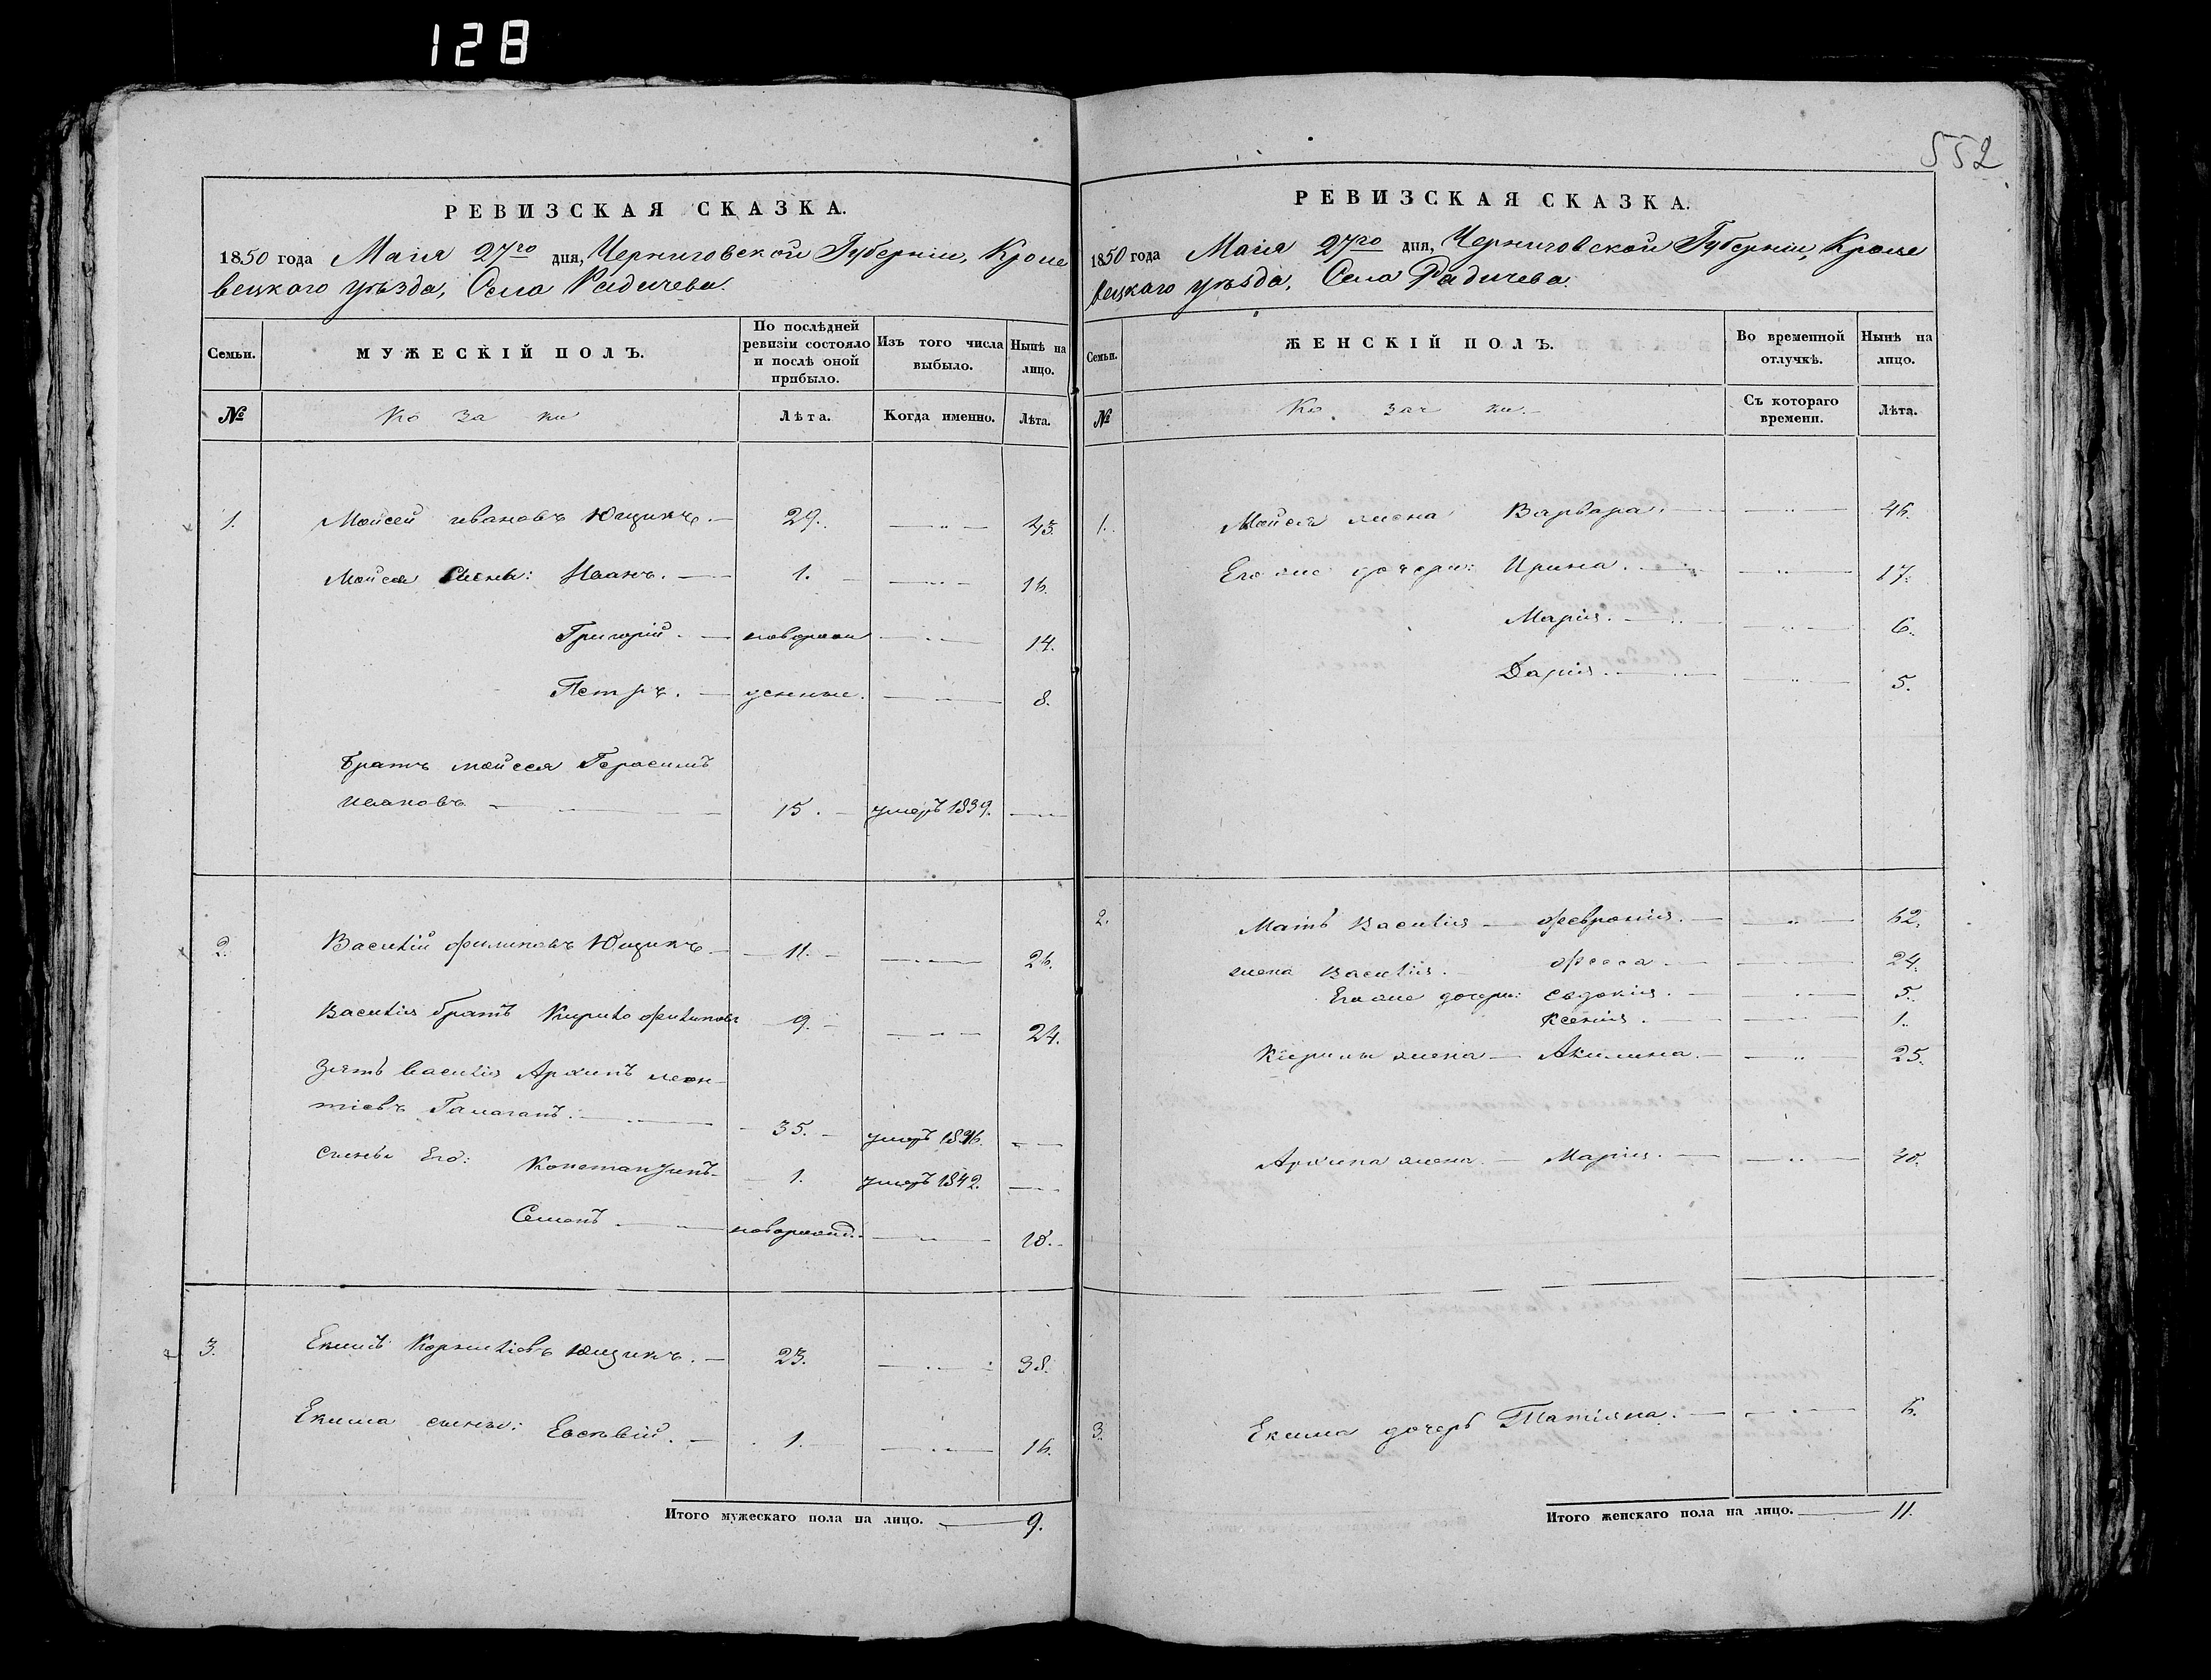 128
552
РЕВИЗСКАЯ СКАЗКА.
1850 года Маія 27го дня, Черниговской Губерніи, Кроле
вецкаго уѣзда, Села Радичева.
Семьи.
МУЖЕСКІЙ ПОЛЪ.
По послѣдней ревизіи состояло и послѣ оной прибыло.
Изъ того числа выбыло.
Нынѣ на лицо.
№
Козаки
Лѣта.
Когда именно.
Лѣта.
1. Мойсей ивановъ Ющикъ. 29. 43.
Мойсея Сыны: Иванъ. 1. 16.
Григорій. новорож 14.
Петръ. денные. 8.
Братъ мойсея Герасимъ
Ивановъ 15. умеръ 1839.
2. Василій филиповъ Ющикъ 11. 26.
Василія братъ Кирило филиповъ 9. 24.
Зять василія Архипъ леон-
тіевъ Гамаганъ. 35. умеръ 1836.
сыны Его: Константинъ 1. умеръ 1842.
Семенъ новорожд. 10.
3. Екимъ Корнилієвъ Ющикъ. 23. 38.
Екима сыны: 1. 16.
Итого мужескаго пола на лицо. 9.
РЕВИЗСКАЯ СКАЗКА.
1850 года Маія 27го дня, Черниговской Губерніи, Кроле
вецкаго уѣзда, Села Радичева.
Семьи.
ЖЕНСКІЙ ПОЛЪ.
Во временной отлучкѣ.
Нынѣ на лицо.
№
Козачки.
Съ котораго времени.
Лѣта.
1. Мойсея жена Варвара. 46.
Его же дочери: Ирина. 17.
Марія. 6.
Дарія. 5.
2. Мать Василія февронія. 62.
жена Василія. 24.
Его же дочери: Евдокія. 5.
Ксенія. 1.
Кирилы жена Акилина. 25.
Архипа жена Марія. 40.
3. Екима дочерь Татіяна. 6.
Итого женскаго пола на лицо. 11.